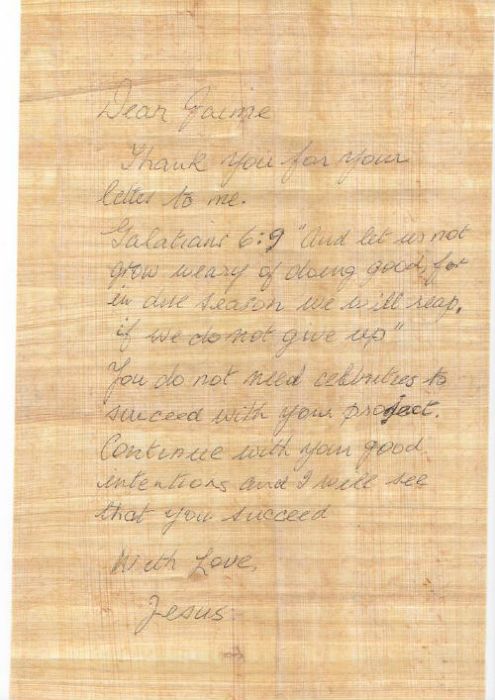 Dear Jaime
Thank you for your
letter to me.
Galatians 6:9 "And let us not
grow weary of doing good, for
in due season we will reap,
if we do not give up"
You do not need celebrities to
succeed with your project.
Continue with your good
intentions and I will see
that you succeed
With Love,
Jesus